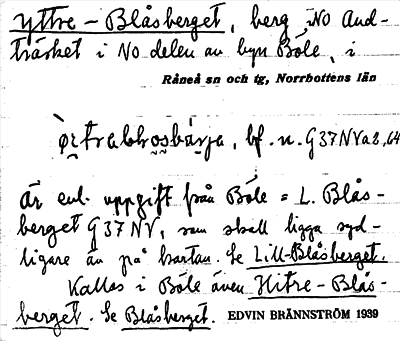 Yttre-Blåsberget, berg NO And-
träsket i NO delen av byn Böle, i
Råneå sn och tg, Norrbottens län
bf. n. G37NVa8,64
Är enl. uppgift från Böle = L. Blås-
berget G37NV, som skall ligga syd-
ligare än på kartan. Se Lill-Blåsberget.
Kallas i Böle även Hitre-Blås-
berget. Se Blåsberget. EDVIN BRÄNNSTRÖM 1939